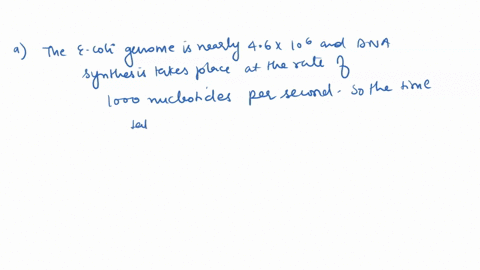 a) The E-coli genome is nearly 4.6 x 10⁶ and DNA
synthesis takes place at the rate of
1000 nucleotides per second. So the time